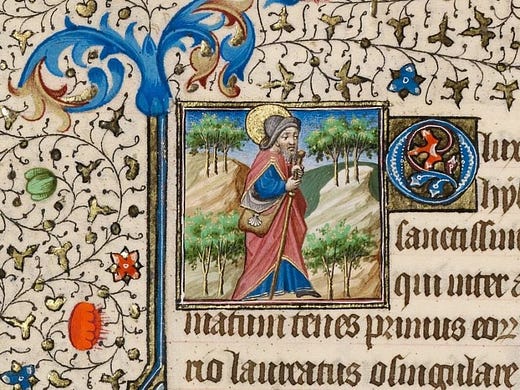 O lux
hy
sanctissim
qui inter a
matum tenes primus eor
rio laureatus o singulare